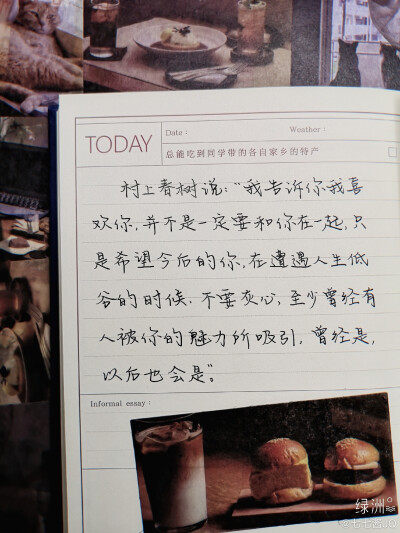 TODAY
Date:
Weather:
总能吃到同学带的各自家乡的特产
村上春树说:“我告诉你我喜
欢你,并不是一定要和你在一起,只
是希望今后的你,在遭遇人生低
谷的时候,不要灰心,至少曾经有
人被你的魅力所吸引,曾经是,
以后也会是”。
Informal essay:
绿洲